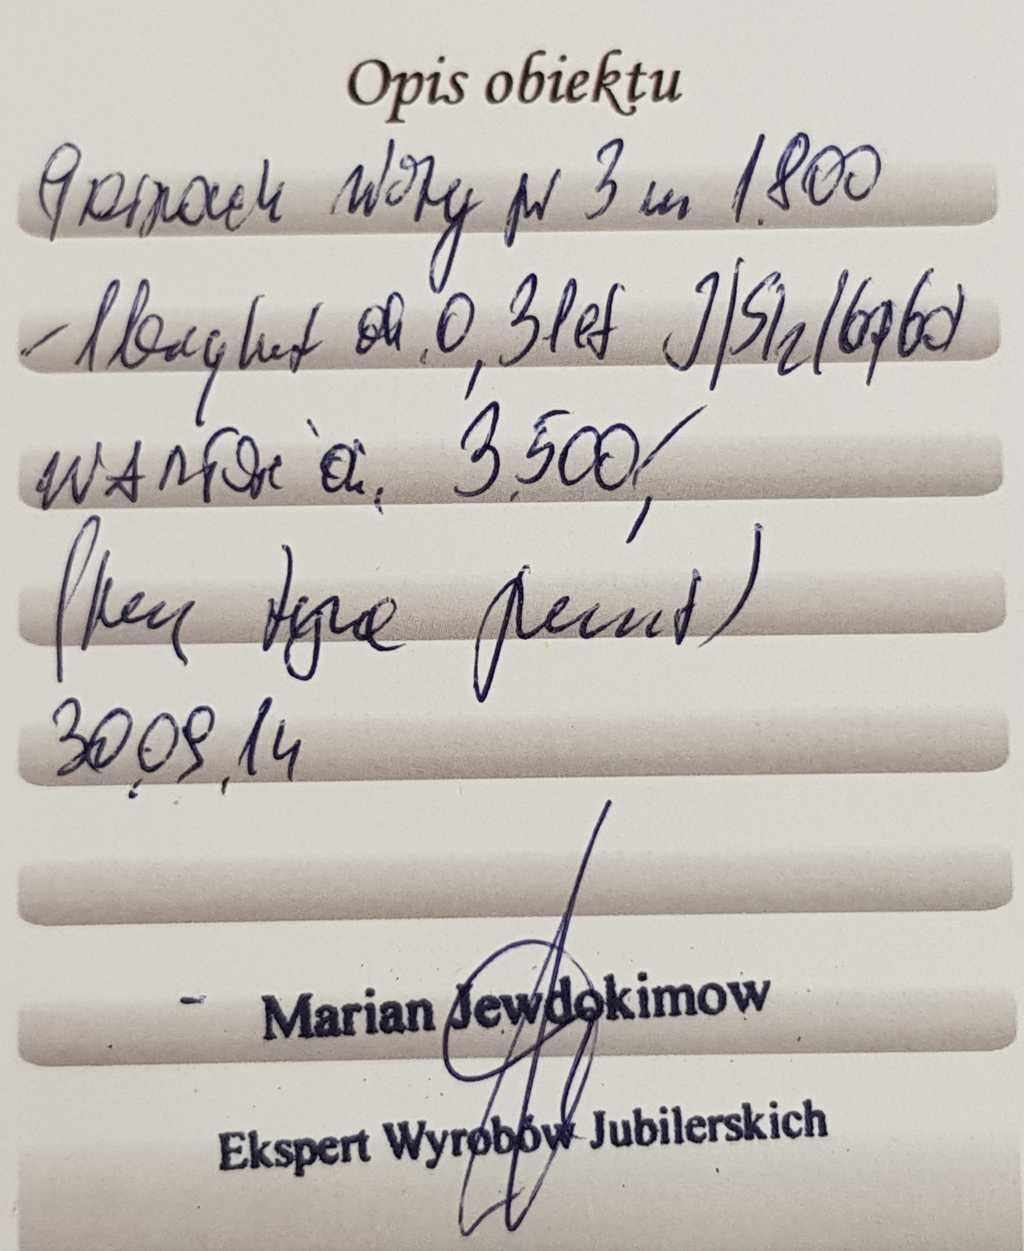 Opis obiektu
Pierścionek złoty pr 3 m 1.800
- 1 brylant ok. 0,31ct J/SI2/
wartość ok. 3.500,/
(trzy tysiące pięćset)
30.09.14
Marian Jewdokimow
Ekspert Wyrobów Jubilerskich